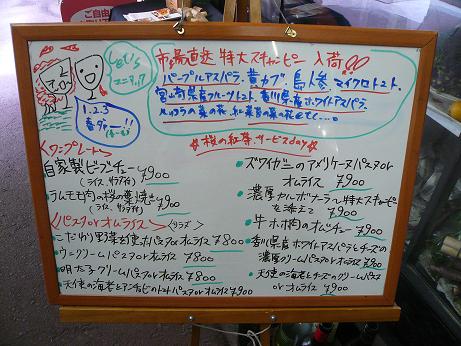 ご自由
Let's
市場直送 特大スキャンピー 入荷!!
パープルアスパラ、黄カブ、島人参、マイクロトマト、
宮崎県産フルーツトマト、香川県産ホワイトアスパラ、
菜の花 紅菜苔の菜の花 etc…。
1.2.3
☆桜の紅茶サービスday☆
〈ワンプレート〉
自家製ビーフシチュー ¥900
(ライス、サラダ付)
ラムモモ肉の桜の葉焼き ¥900
(ライス、サラダ付)
〈パスタorオムライス〉〈サラダ〉
・こだわり野菜を使ったパスタorオムライス ¥800
・ウニクリームパスタorオムライス ¥800
・明太子クリームパスタorオムライス ¥800
・天使の海老とアンチョビのトマトパスタorオムライス ¥900
・ズワイガニのアメリケーヌパスタor
オムライス ¥900
・濃厚カルボナーラへ特大スキャンピー
を添えて ¥900
・牛ホホ肉のオムシチュー ¥900
・香川県産ホワイトアスパラとチーズの
濃厚クリームパスタorオムライス ¥900
・天使の海老とチーズのクリームパスタ
orオムライス ¥900